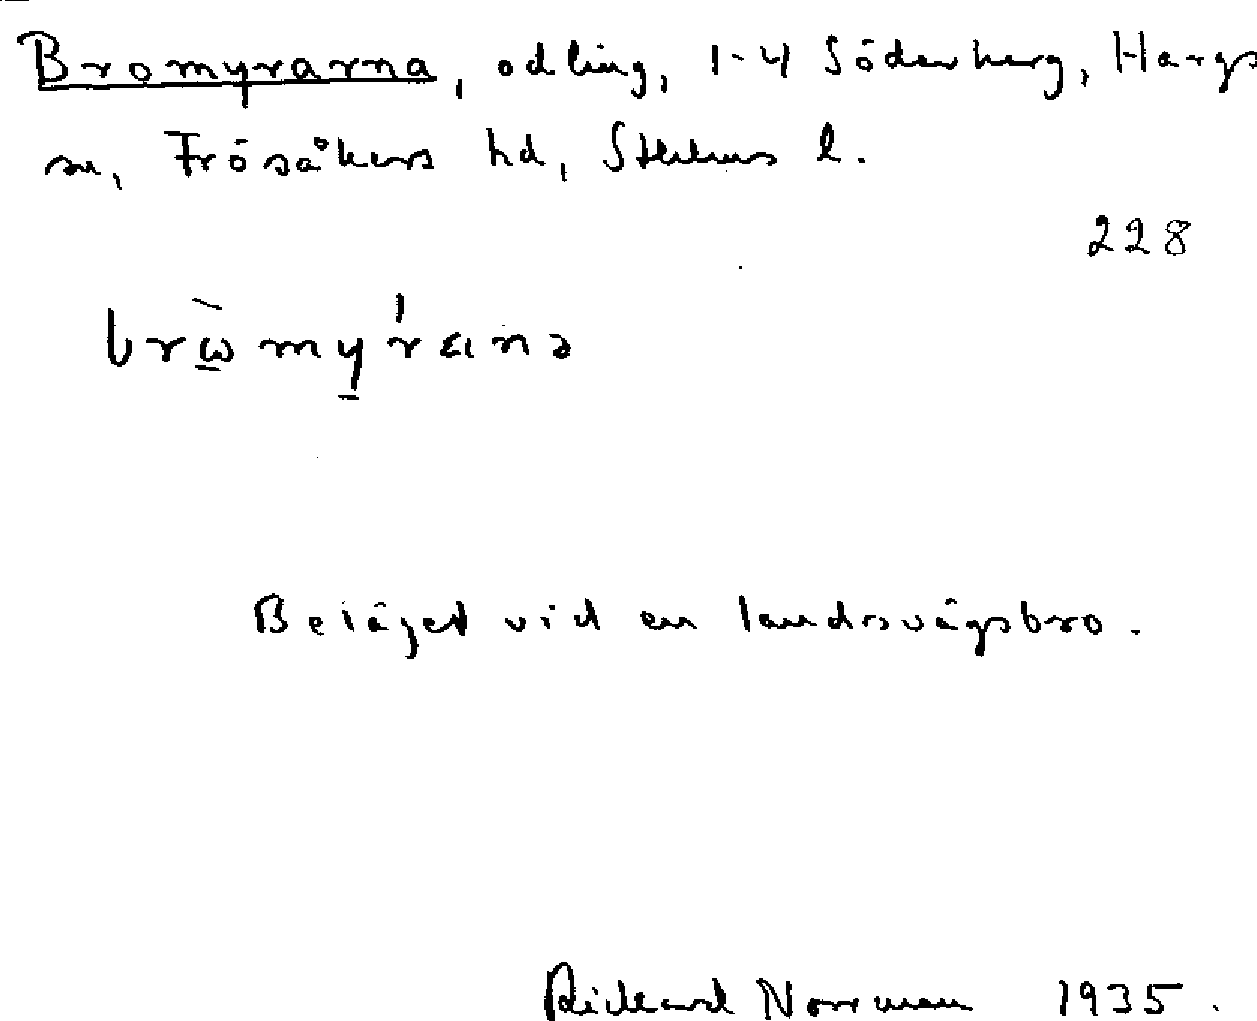 Bromyrarna, odling, 1-4 Söderberg, Hargs
sn, Frösåkers hd, Sthlms l.
228
brὼ̠my̠ŕana
Beläget vid en landsvägsbro.
Rickard Norrman 1935.